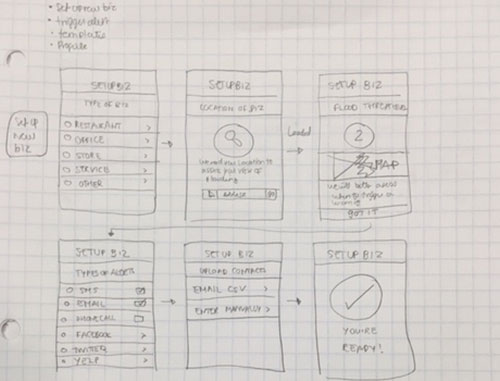 • Set up new biz
• trigger alert
• templates
• Profile
SET UP
NEW
BIZ
SETUP BIZ
TYPE OF BIZ
RESTAURANT >
OFFICE >
STORE >
SERVICE >
OTHER >
SETUP BIZ
LOCATION OF BIZ
8
We need your location to
assess your risk of
flooding
Loaded
SETUP BIZ
2
MAP
GOT IT
SETUP BIZ
TYPES OF ALERTS
SMS
EMAIL
PHONE CALL
FACEBOOK >
TWITTER >
YELP >
SETUP BIZ
UPLOAD CONTACTS
EMAIL CSV >
ENTER MANUALLY >
SETUP BIZ
YOU'RE
READY!